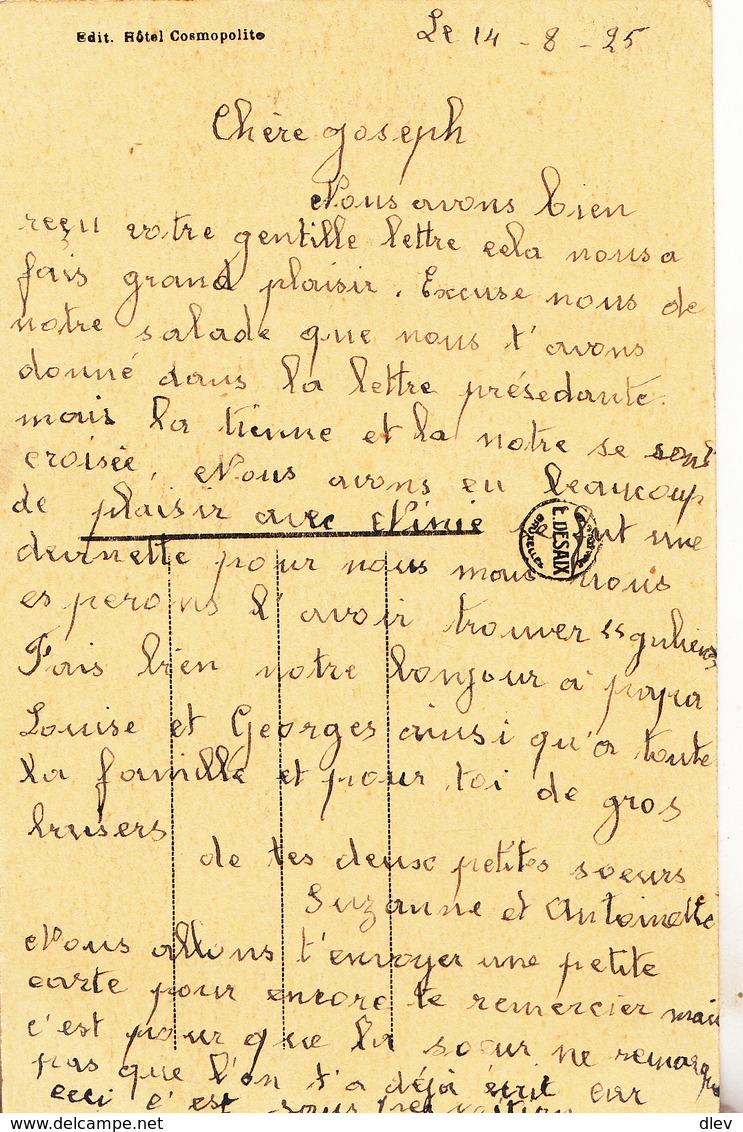 Edit. Hôtel Cosmopolite
Le 14 - 8 - 25
Chère Joseph
Nous avons bien
reçu votre gentille lettre cela nous a
fais grand plaisir. Excuse nous de
notre salade que nous t'avons
donné dans la lettre présedante.
mais la tienne et la notre se sont
croisée, Nous avons eu beaucoup
de plaisir avec Ninie une
devinette pour nous mais nous
esperons l'avoir trouver
Fais bien notre bonjour à papa
Louise et Georges ainsi qu'a toute
la famille et pour toi de gros
baisers
de tes deux petites soeurs
Suzanne et Antoinette
Nous allons t'envoyer une petite
carte pour encore te remercier mais
c'est pour que la soeur ne remarque
pas que l'on t'a déjà écrit car
ceci c'est sous
E. DESAIX
BRUXELLES
dlev